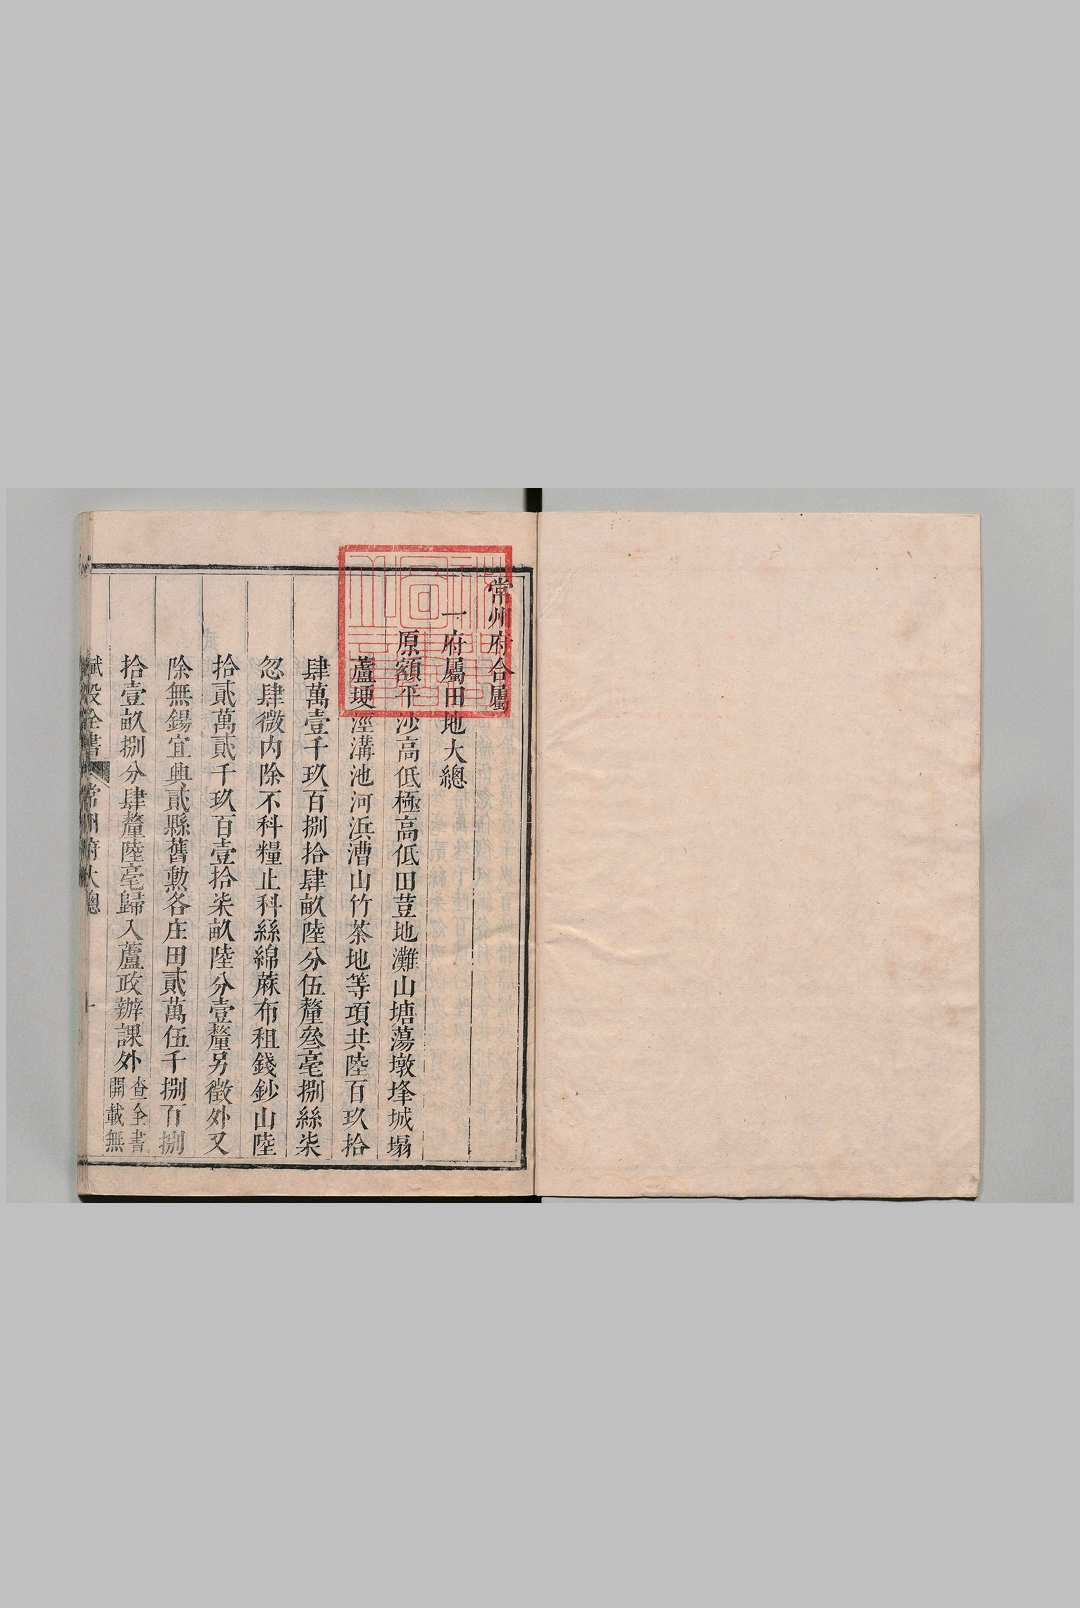 常州府合屬
一府屬田地大總
原額平沙高低極高低田荳地灘山塘蕩墩埄城塌
蘆埂涇溝池河浜漕山竹茶地等項共陸百玖拾
肆萬壹千玖百捌拾肆畝陸分伍釐叄毫捌絲柒
忽肆微內除不科糧止科絲綿蔴布租錢鈔山陸
拾貳萬貳千玖百壹拾柒畝陸分壹釐另徵外又
除無錫宜興貳縣舊勲各庄田貳萬伍千捌百捌
拾壹畝捌分肆釐陸毫歸入蘆政辦課外查全書
開載無
賦役全書 常州府大總 十